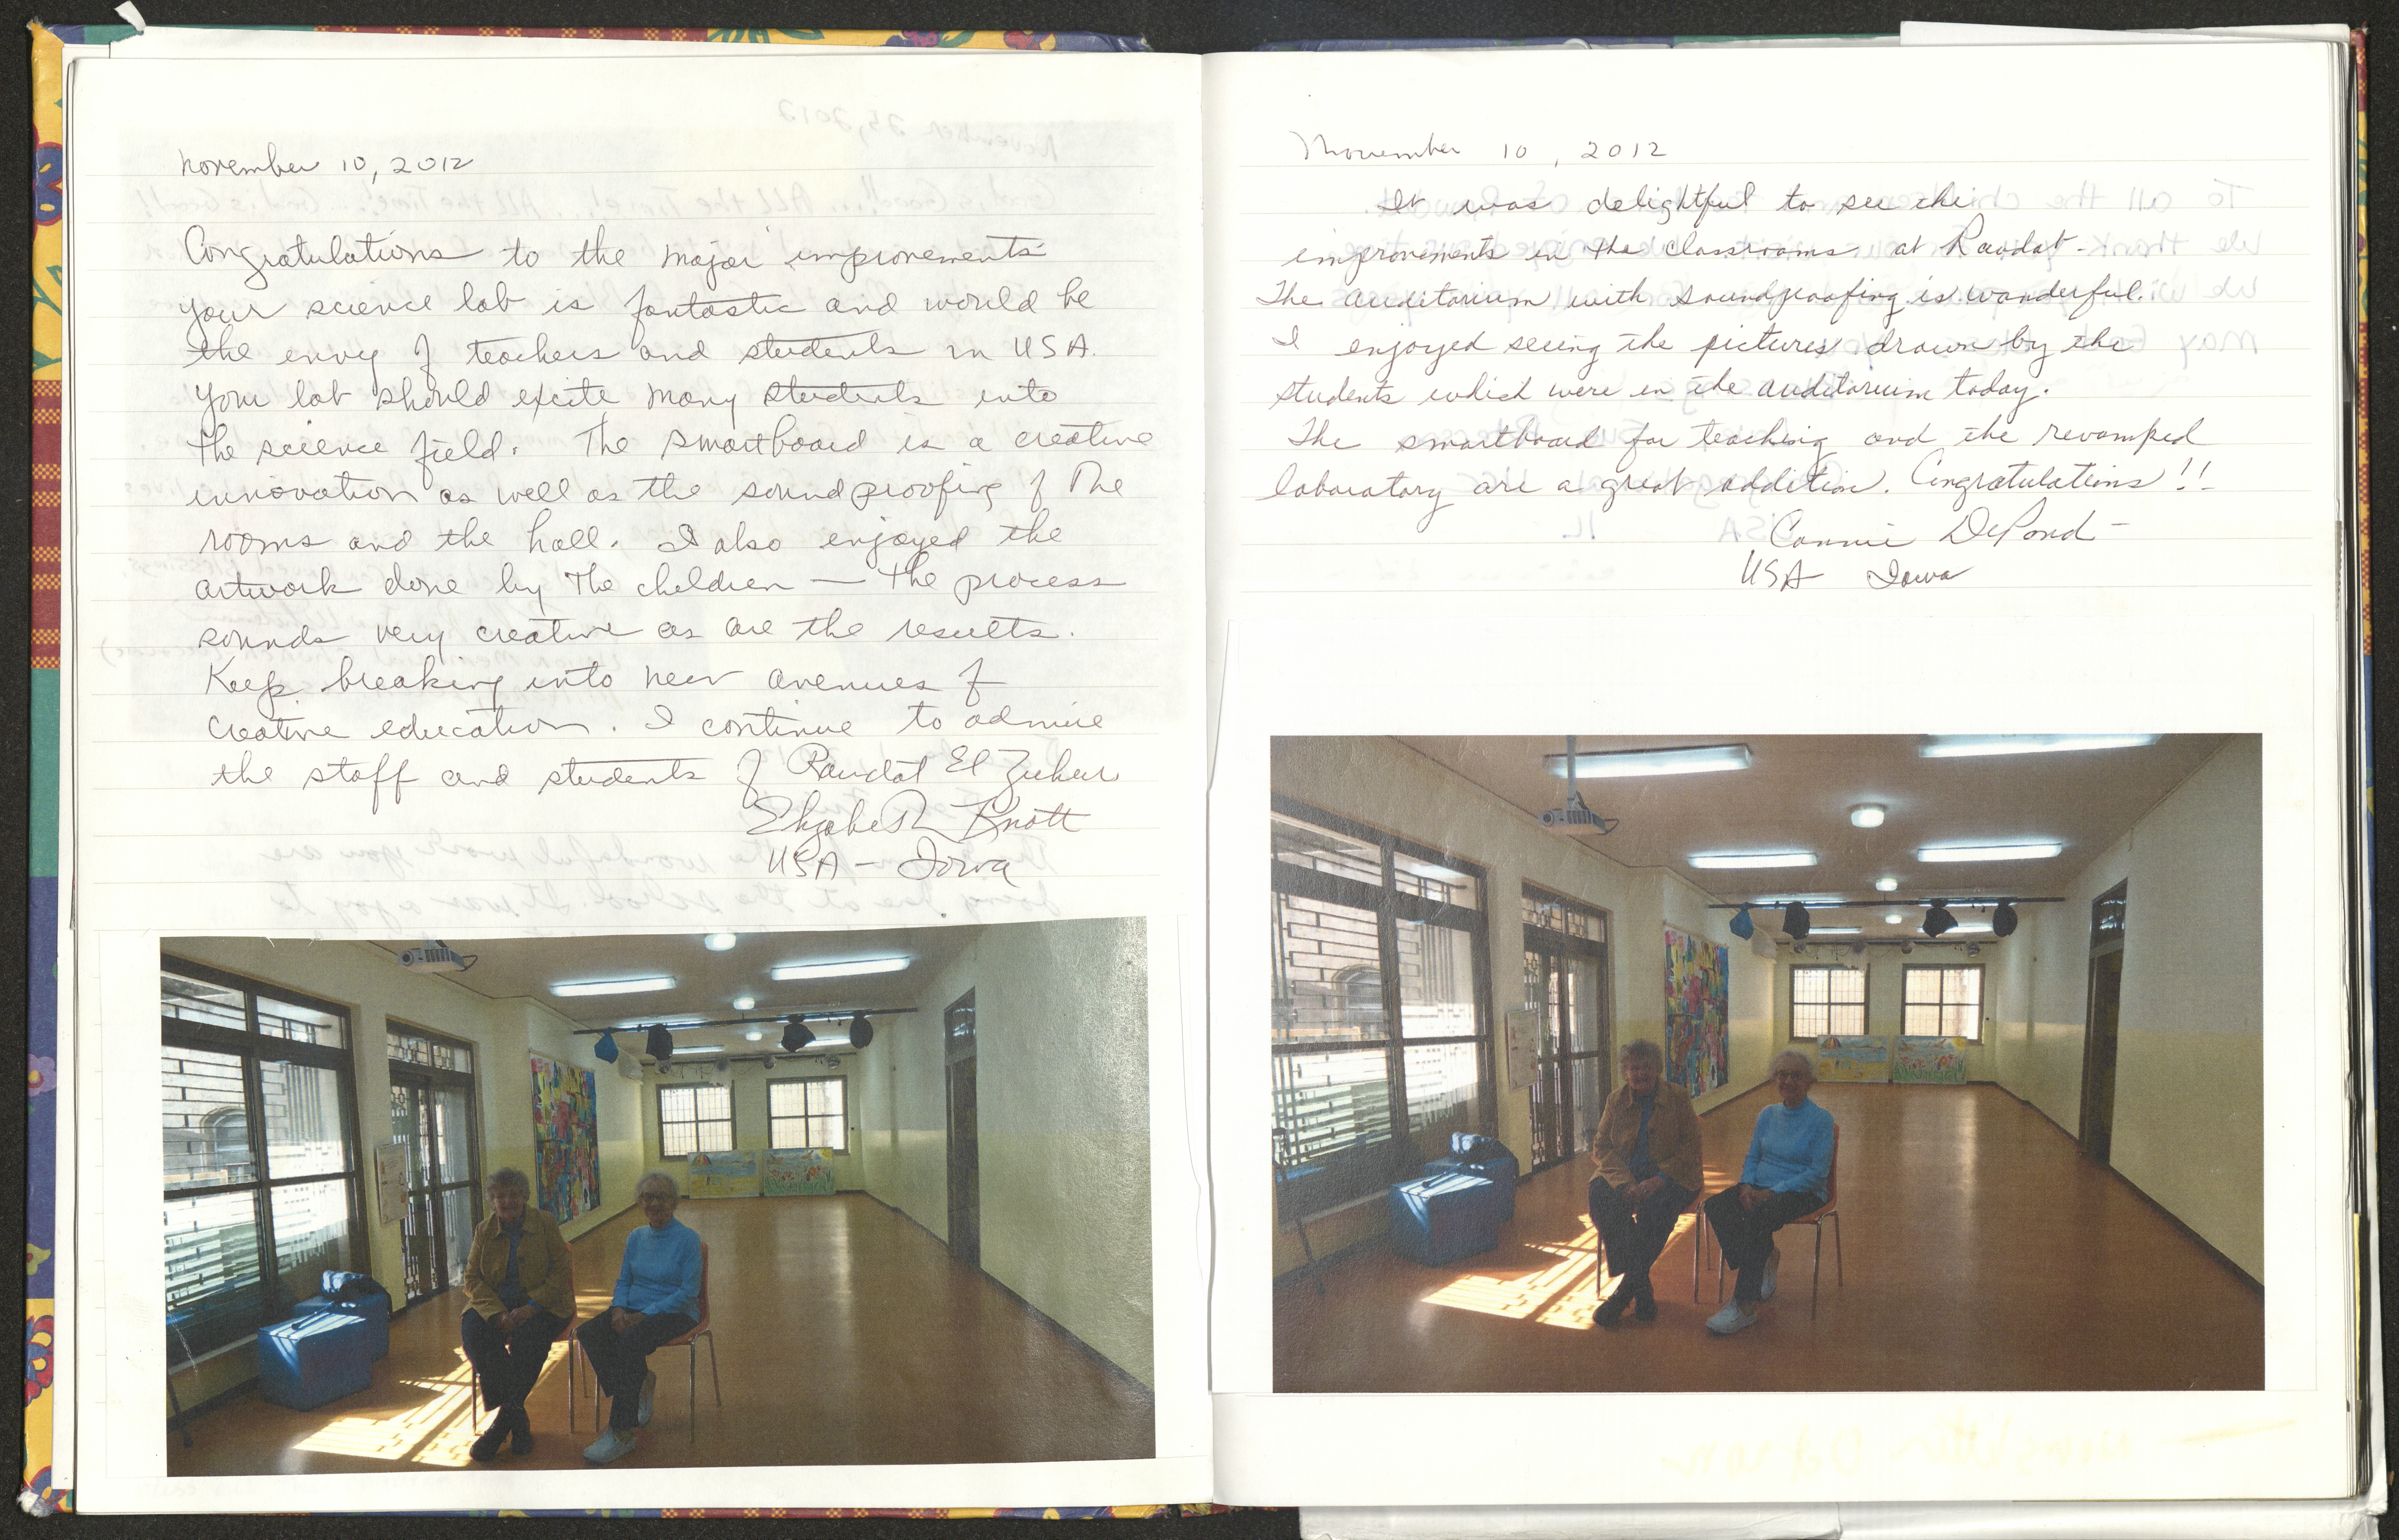 November 10, 2012
Congratulations to the major improvements
your science lab is fantastic and would be
the envy of teachers and students in USA.
Your lab should excite many students into
the science field. The smartboard is a creative
innovation as well as the soundproofing of the
rooms and the hall. I also enjoyed the
artwork done by the children — the process
sounds very creative as are the results.
Keep breaking into new avenues of
creative education. I continue to admire
the staff and students of Raudat El Zuhur
Elizabeth Knott
USA - Iowa
November 10, 2012
It was delightful to see the
improvements in the classrooms at Raodat-
The auditorium with soundproofing is wonderful.
I enjoyed seeing the pictures drawn by the
students which were in the auditorium today.
The smartboard for teaching and the revamped
laboratory are a great addition. Congratulations!!
Connie DePond
USA Iowa